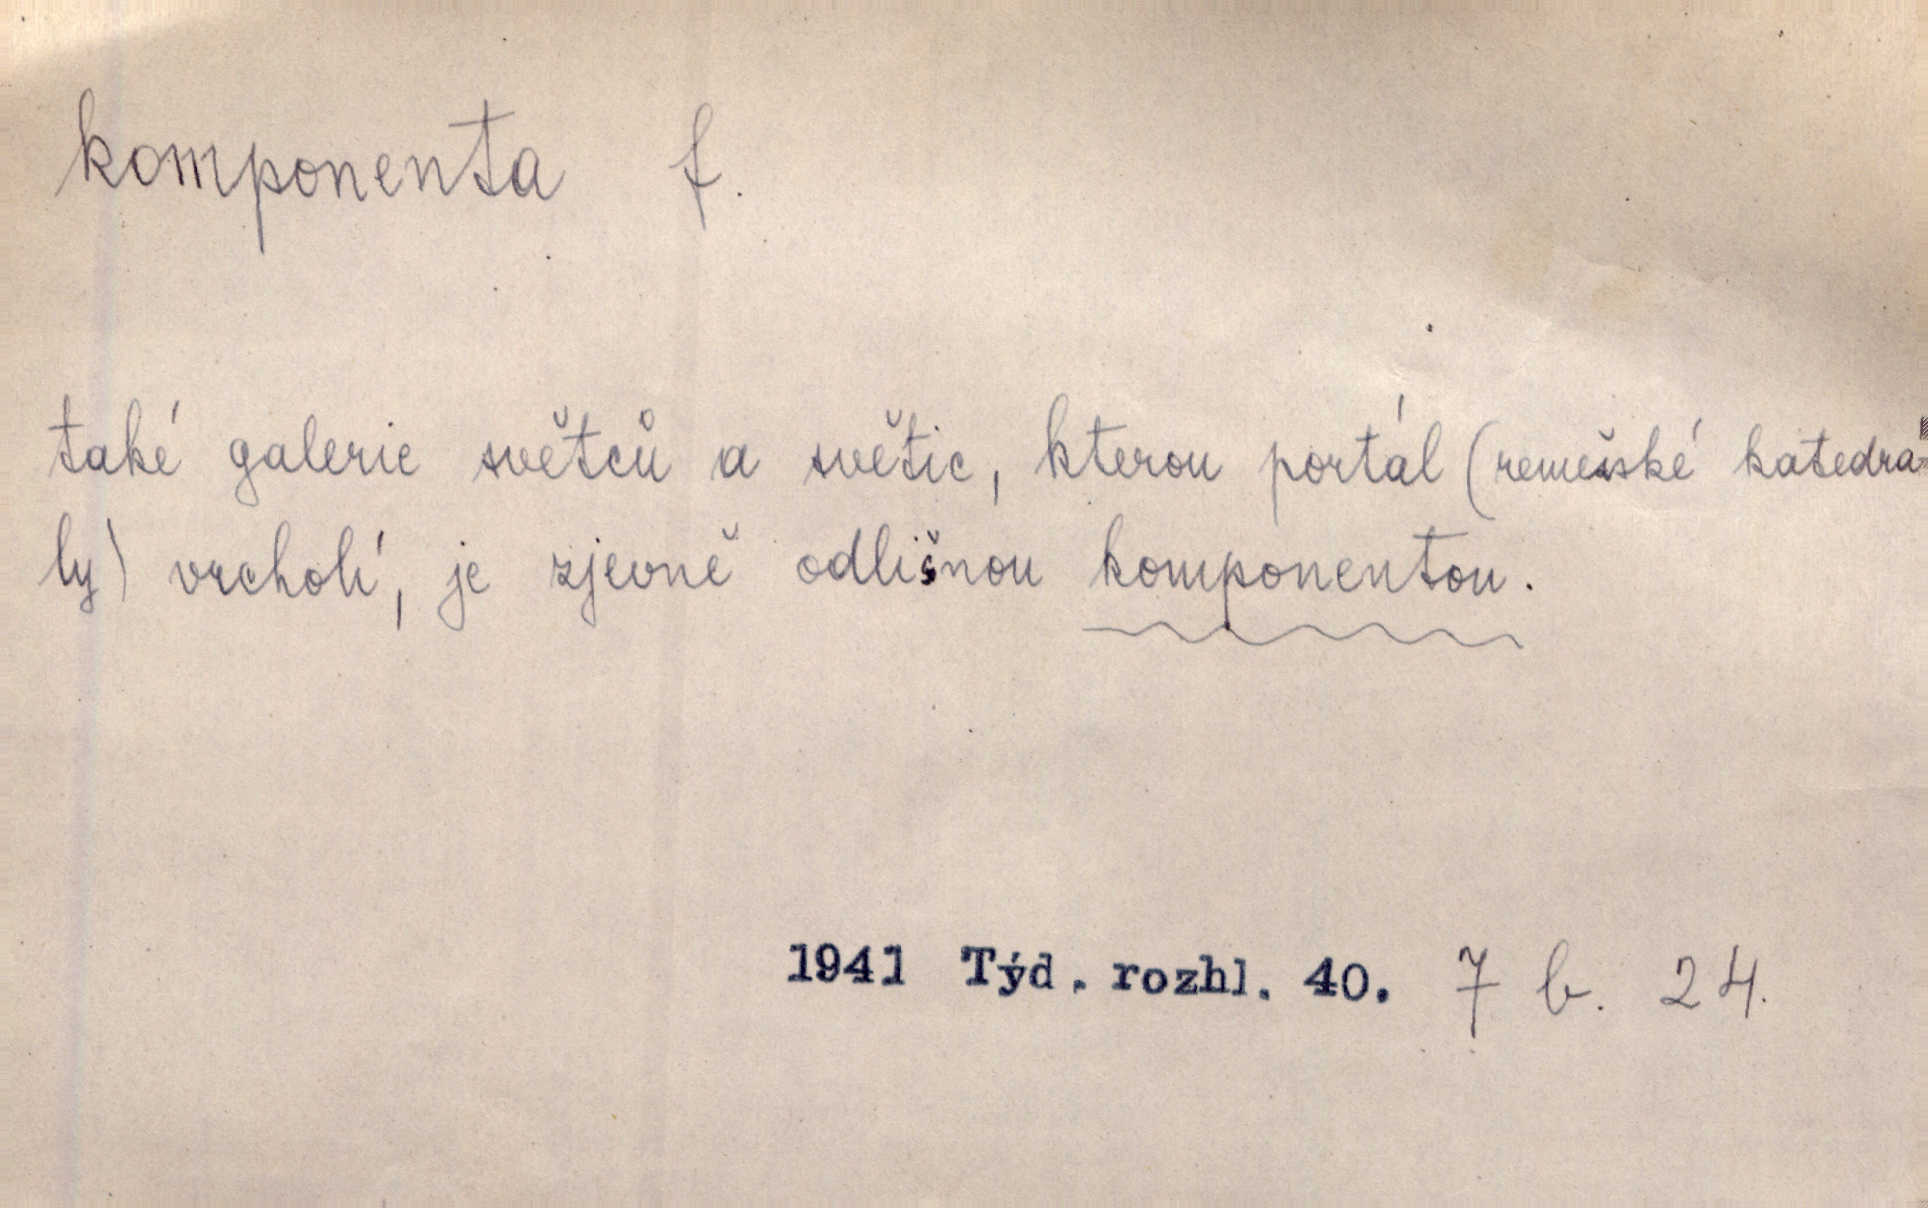 komponenta f.
také galerie světců a světic, kterou portál (remešské katedra-
ly) vrcholí, je zjevně odlišnou komponentou.
1941 Týd. rozhl. 40. 7 b. 24.